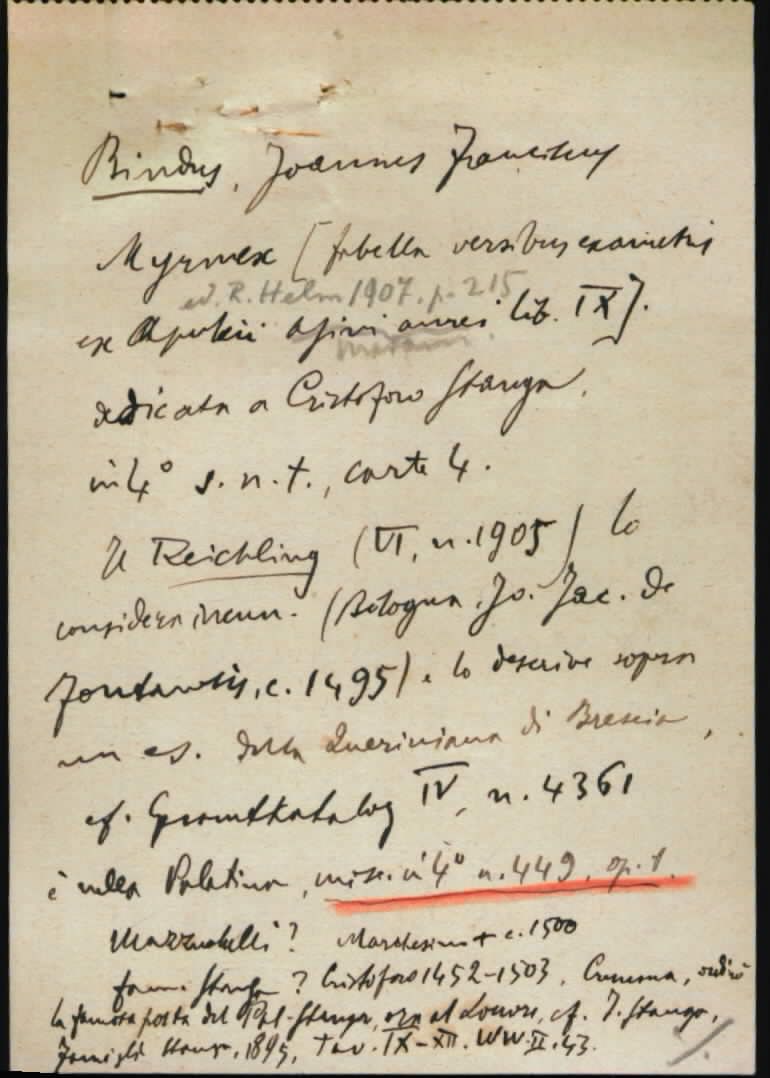 Bindus, Joannes Franciscus
Myrmex [fabella versibus exametris
ed. R. Helm 1907. p. 215
ex Apuleii Asini aurei lib. IX].
dedicata a Cristoforo Stanga,
in 4° s. n. t., carte 4.
Il Reichling (VI, n. 1905) lo
considera incun. (Bologna, Jo. Jac. de
Fontanesis, c. 1495) e lo descrive sopra
un es. della Queriniana di Brescia,
cf. Gesamtkatalog IV, n. 4361
è nella Palatina, misc. in 4° n. 449, op. 1.
Mazzuchelli? Marchesinus + c. 1500
fam. Stanga? Cristoforo 1452-1503, Cremona, ordinò
la famosa porta del Pal. Stanga, ora al Louvre, cf. I. Stanga,
Famiglia Stanga, 1895, Tav. IX-XII. WW. II. 43.